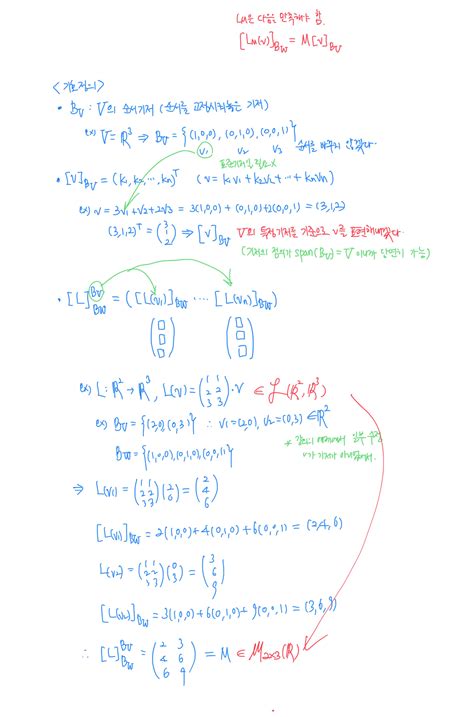 L_M은 다음을 만족해야 함.
[L_M(v)]_{B_W} = M[v]_{B_V}
<기호정의>
• B_V : V의 순서기저 (순서를 고정시켜놓은 기저)
ex) V = ℝ³ ⇒ B_V = {(1,0,0), (0,1,0), (0,0,1)}
v₁ v₂ v₃ 순서를 바꾸지 않겠다.
표준기저일 필요 X
• [v]_{B_V} = (k₁, k₂, ..., kₙ)^T (v = k₁v₁ + k₂v₂ + ... + kₙvₙ)
ex) v = 3v₁ + v₂ + 2v₃ = 3(1,0,0) + (0,1,0) + 2(0,0,1) = (3,1,2)
(3,1,2)^T = (3 1 2) ⇒ [v]_{B_V} V의 특정기저를 기준으로 v를 표현해내겠다.
(기저의 정의가 span(B_V) = V 이니까 당연히 가능)
• [L]^{B_V}_{B_W} = ([L(v₁)]_{B_W} ... [L(vₙ)]_{B_W})
(□ □ □) (□ □ □)
ex) L: ℝ² → ℝ³, L(v) = (1 1 2 2 3 3) · v ∈ ℒ(ℝ², ℝ³)
ex) B_V = {(2,0), (0,3)} ∴ v₁ = (2,0), v₂ = (0,3) ∈ ℝ²
B_W = {(1,0,0), (0,1,0), (0,0,1)}
* 일부
v가 기저가
⇒ L(v₁) = (1 1 2 2 3 3)(2 0) = (2 4 6)
[L(v₁)]_{B_W} = 2(1,0,0) + 4(0,1,0) + 6(0,0,1) = (2,4,6)
L(v₂) = (1 1 2 2 3 3)(0 3) = (3 6 9)
[L(v₂)]_{B_W} = 3(1,0,0) + 6(0,1,0) + 9(0,0,1) = (3,6,9)
∴ [L]^{B_V}_{B_W} = (2 3 4 6 6 9) = M ∈ ℳ_{2×3}(ℝ)